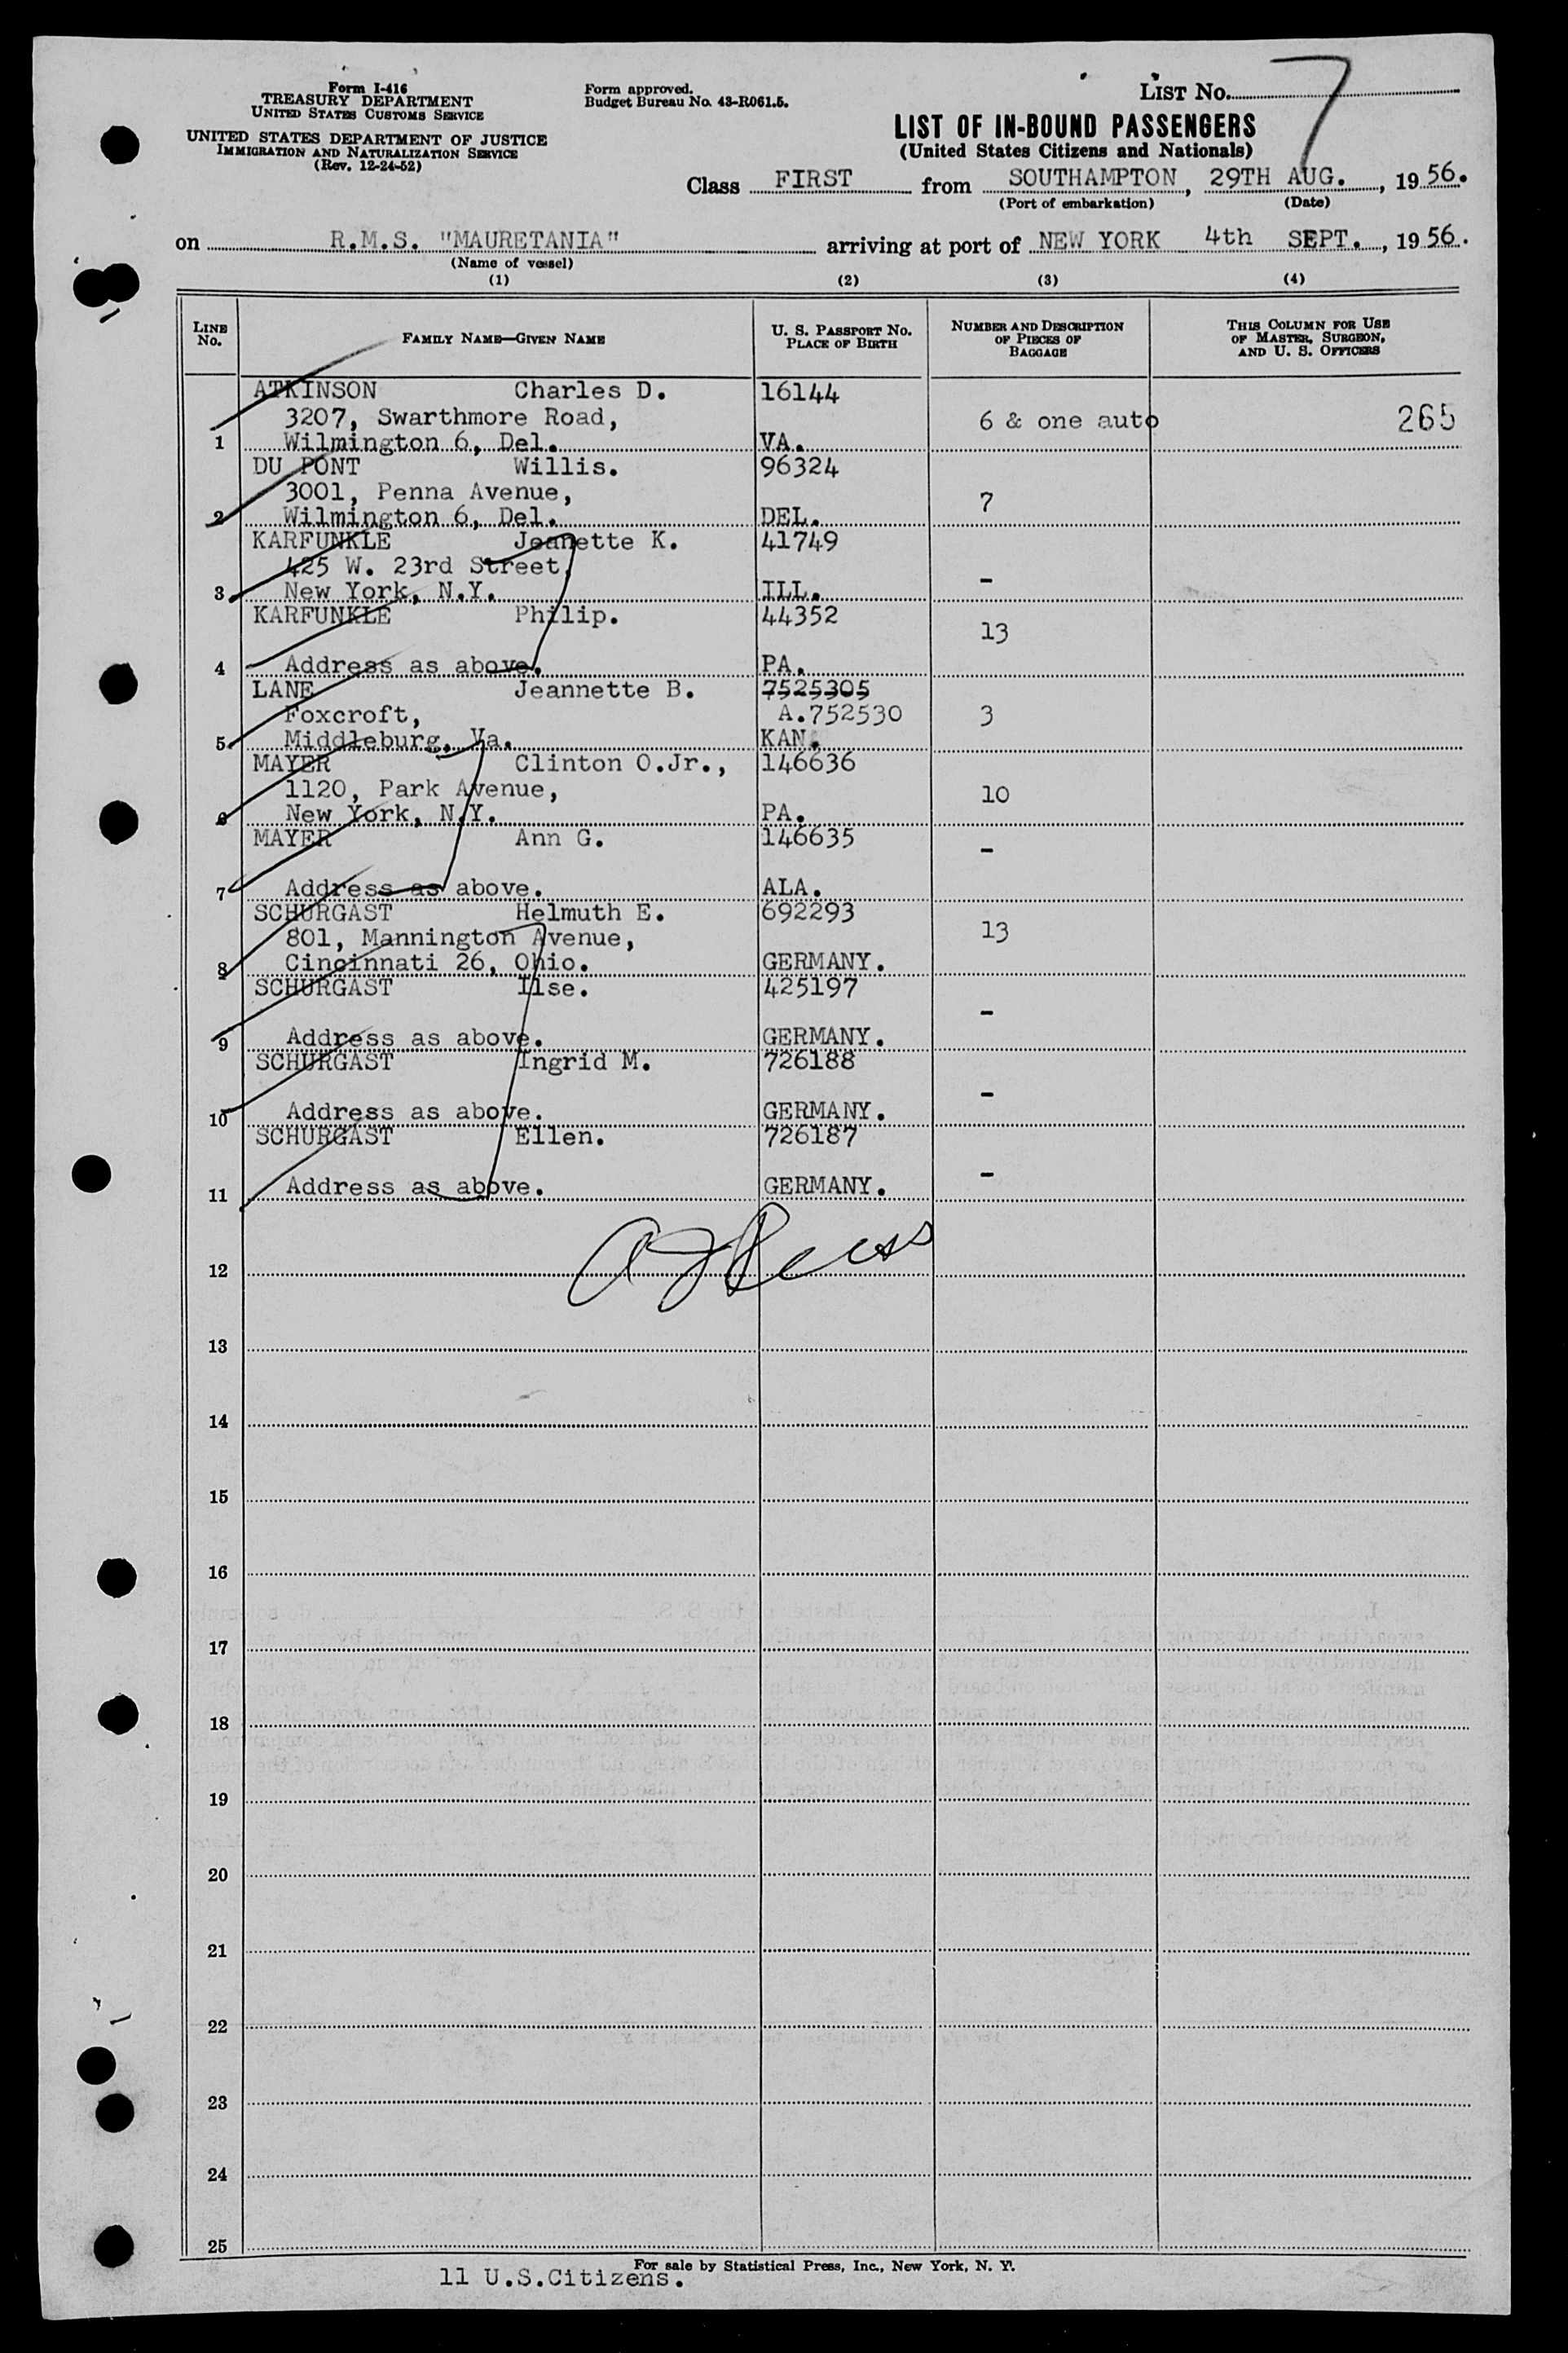 Form I-416
TREASURY DEPARTMENT
UNITED STATES CUSTOMS SERVICE
UNITED STATES DEPARTMENT OF JUSTICE
IMMIGRATION AND NATURALIZATION SERVICE
(Rev. 12-24-52)
Form approved.
Budget Bureau No. 43-R061.5.
LIST No. 7
LIST OF IN-BOUND PASSENGERS
(United States Citizens and Nationals)
Class FIRST from SOUTHAMPTON, 29TH AUG., 19 56.
(Port of embarkation) (Date)
on R.M.S. "MAURETANIA" arriving at port of NEW YORK 4th SEPT., 19 56.
(Name of vessel)
(1) (2) (3) (4)
LINE No. FAMILY NAME—GIVEN NAME U. S. PASSPORT No. PLACE OF BIRTH NUMBER AND DESCRIPTION OF PIECES OF BAGGAGE THIS COLUMN FOR USE OF MASTER, SURGEON, AND U. S. OFFICERS
ATKINSON Charles D. 16144
3207, Swarthmore Road, 6 & one auto 265
1 Wilmington 6, Del. VA.
DU PONT Willis. 96324
3001, Penna Avenue, 7
2 Wilmington 6, Del. DEL.
KARFUNKLE Jeanette K. 41749
425 W. 23rd Street, -
3 New York, N.Y. ILL.
KARFUNKLE Philip. 44352
13
4 Address as above. PA.
LANE Jeannette B. 7525305
Foxcroft, A.752530 3
5 Middleburg, Va. KAN.
MAYER Clinton O.Jr., 146636
1120, Park Avenue, 10
6 New York, N.Y. PA.
MAYER Ann G. 146635
-
7 Address as above. ALA.
SCHURGAST Helmuth E. 692293
801, Mannington Avenue, 13
8 Cincinnati 26, Ohio. GERMANY.
SCHURGAST Ilse. 425197
-
9 Address as above. GERMANY.
SCHURGAST Ingrid M. 726188
-
10 Address as above. GERMANY.
SCHURGAST Ellen. 726187
-
11 Address as above. GERMANY.
12
13
14
15
16
17
18
19
20
21
22
23
24
25
For sale by Statistical Press, Inc., New York, N. Y.
11 U.S.Citizens.